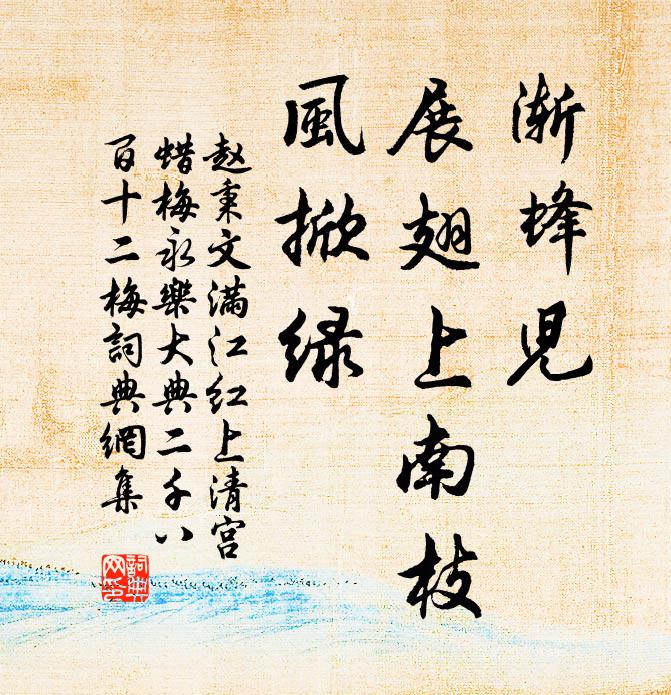 渐蜂児
展翅上南枝
風掀绿
赵秉文满江红上清宫
蜡梅永樂大典二千八
百十二梅詞典網集
詞典
网集